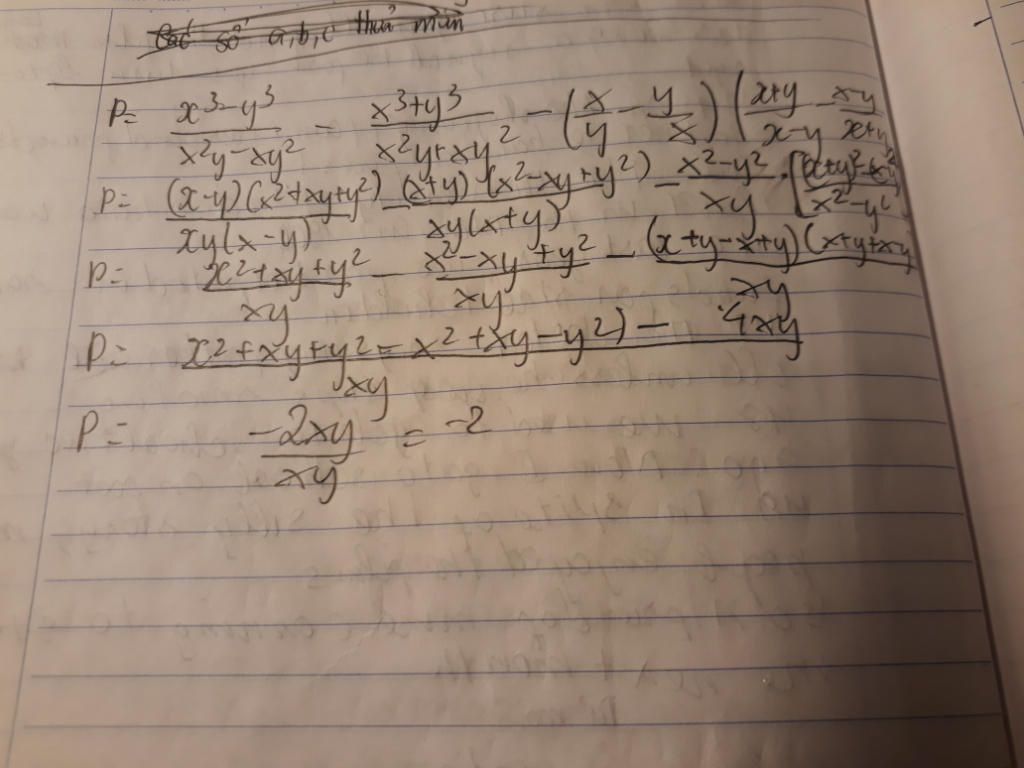 Các số a, b, c thoả mãn
P= \frac{x^3-y^3}{x^2y-xy^2} - \frac{x^3+y^3}{x^2y+xy^2} - (\frac{x}{y} - \frac{y}{x}) (\frac{x+y}{x-y} - \frac{x-y}{x+y}
P= \frac{(x-y)(x^2+xy+y^2)}{xy(x-y)} - \frac{(x+y)(x^2-xy+y^2)}{xy(x+y)} - \frac{x^2-y^2}{xy} . [\frac{(x+y)^2-(x-y)^2}{x^2-y^2}
P= \frac{x^2+xy+y^2}{xy} - \frac{x^2-xy+y^2}{xy} - \frac{(x+y-x+y)(x+y+x-y}{xy}
P= \frac{x^2+xy+y^2-x^2+xy-y^2) - 4xy}{xy}
P= \frac{-2xy}{xy} = -2